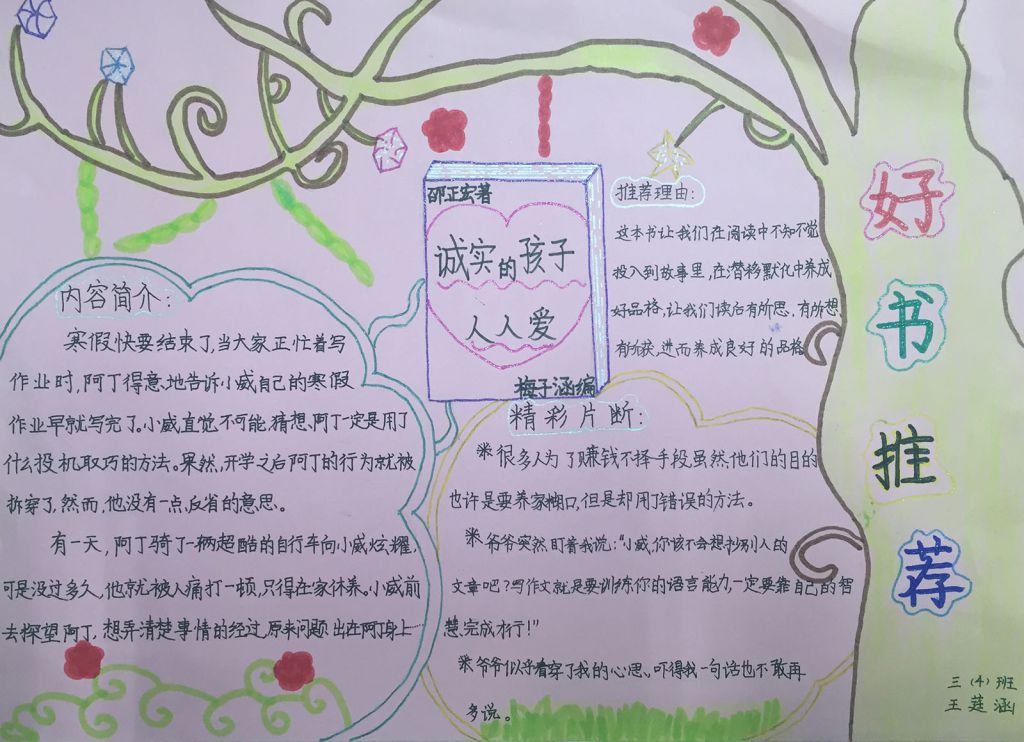 好书推荐
邵正宏著
诚实的孩子
人人爱
梅子涵编
推荐理由:
这本书让我们在阅读中不知不觉
投入到故事里,在潜移默化中养成
好品格,让我们读后有所思,有所想,
有所获,进而养成良好的品格
内容简介:
寒假快要结束了,当大家正忙着写
作业时,阿丁得意地告诉小威自己的寒假
作业早就写完了。小威直觉不可能,猜想、阿丁一定是用了
什么投机取巧的方法。果然,开学之后阿丁的行为就被
拆穿了,然而,他没有一点反省的意思。
有一天,阿丁骑了一辆超酷的自行车向小威炫耀,
可是没过多久,他就被人痛打一顿,只得在家休养。小威前
去探望阿丁,想弄清楚事情的经过,原来问题出在阿丁身上…
精彩片断:
※很多人为了赚钱不择手段虽然,他们的目的
也许是要养家糊口,但是却用了错误的方法。
※爷爷突然盯着我说:“小威,你该不会想抄别人的
文章吧?写作文就是要训练你的语言能力,一定要靠自己的智
慧完成才行!”
※爷爷似乎看穿了我的心思、吓得我一句话也不敢再
多说。
三(4)班
王莛涵